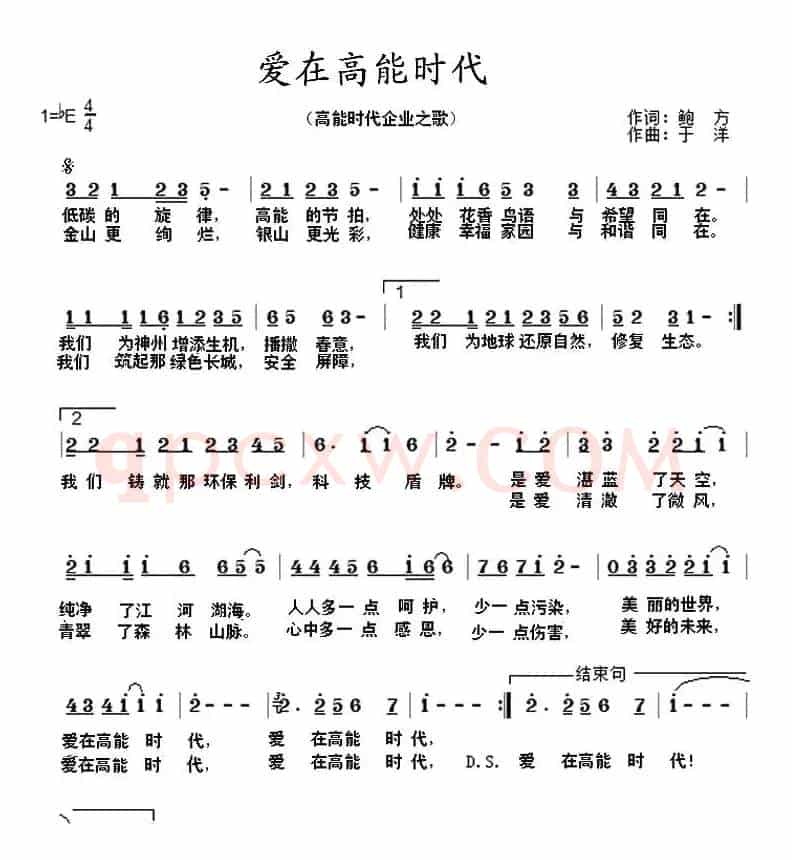 爱在高能时代
1=♭E 4/4
（高能时代企业之歌）
作词：鲍 方
作曲：于 洋
3 2 1 2 3 5 - | 2 1 2 3 5 - | i i i 6 5 3 3 | 4 3 2 1 2 - |
低碳 的 旋 律， 高能 的节 拍， 处处 花香 鸟语 与 希望 同 在。
金山 更 绚 烂， 银山 更光 彩， 健康 幸福 家园 与 和谐 同 在。
1.
1 1 1 1 6 1 2 3 5 | 6 5 6 3 - | 2 2 1 2 1 2 3 5 6 | 5 2 3 1 - :||
我们 为神州 增添生机， 播撒 春意， 我们 为地球 还原自然， 修复 生态。
我们 筑起那 绿色长城， 安全 屏障，
2
2 2 1 2 1 2 3 4 5 | 6 . i i 6 | 2 - - i 2 | 3 3 2 2 1 i i |
我 们 铸 就 那 环保 利 剑， 科 技 盾 牌。 是 爱 湛 蓝 了天 空，
是 爱 清 澈 了微 风，
2 i i i 6 6 5 5 | 4 4 4 5 6 i 6 6 | 7 6 7 i 2 - | 0 3 3 2 2 i i |
纯净 了江 河 湖海。 人人多一 点 呵护， 少一 点污染， 美 丽的世界，
青翠 了森 林 山脉。 心中多一 点 感恩， 少一 点伤害， 美 好的未来，
结束句
4 3 4 i i i | 2 - - - | 2 . 2 5 6 7 | i - - - :|| 2 . 2 5 6 7 | i - - - |
爱在高能 时 代， 爱 在高能 时 代，
爱在高能 时 代， 爱 在高能 时 代， D.S. 爱 在高能 时 代！
qpcxw.COM